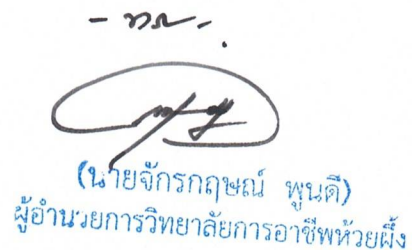 - ทราบ -
(นายจักรกฤษณ์ พูนดี)
ผู้อำนวยการวิทยาลัยการอาชีพห้วยผึ้ง